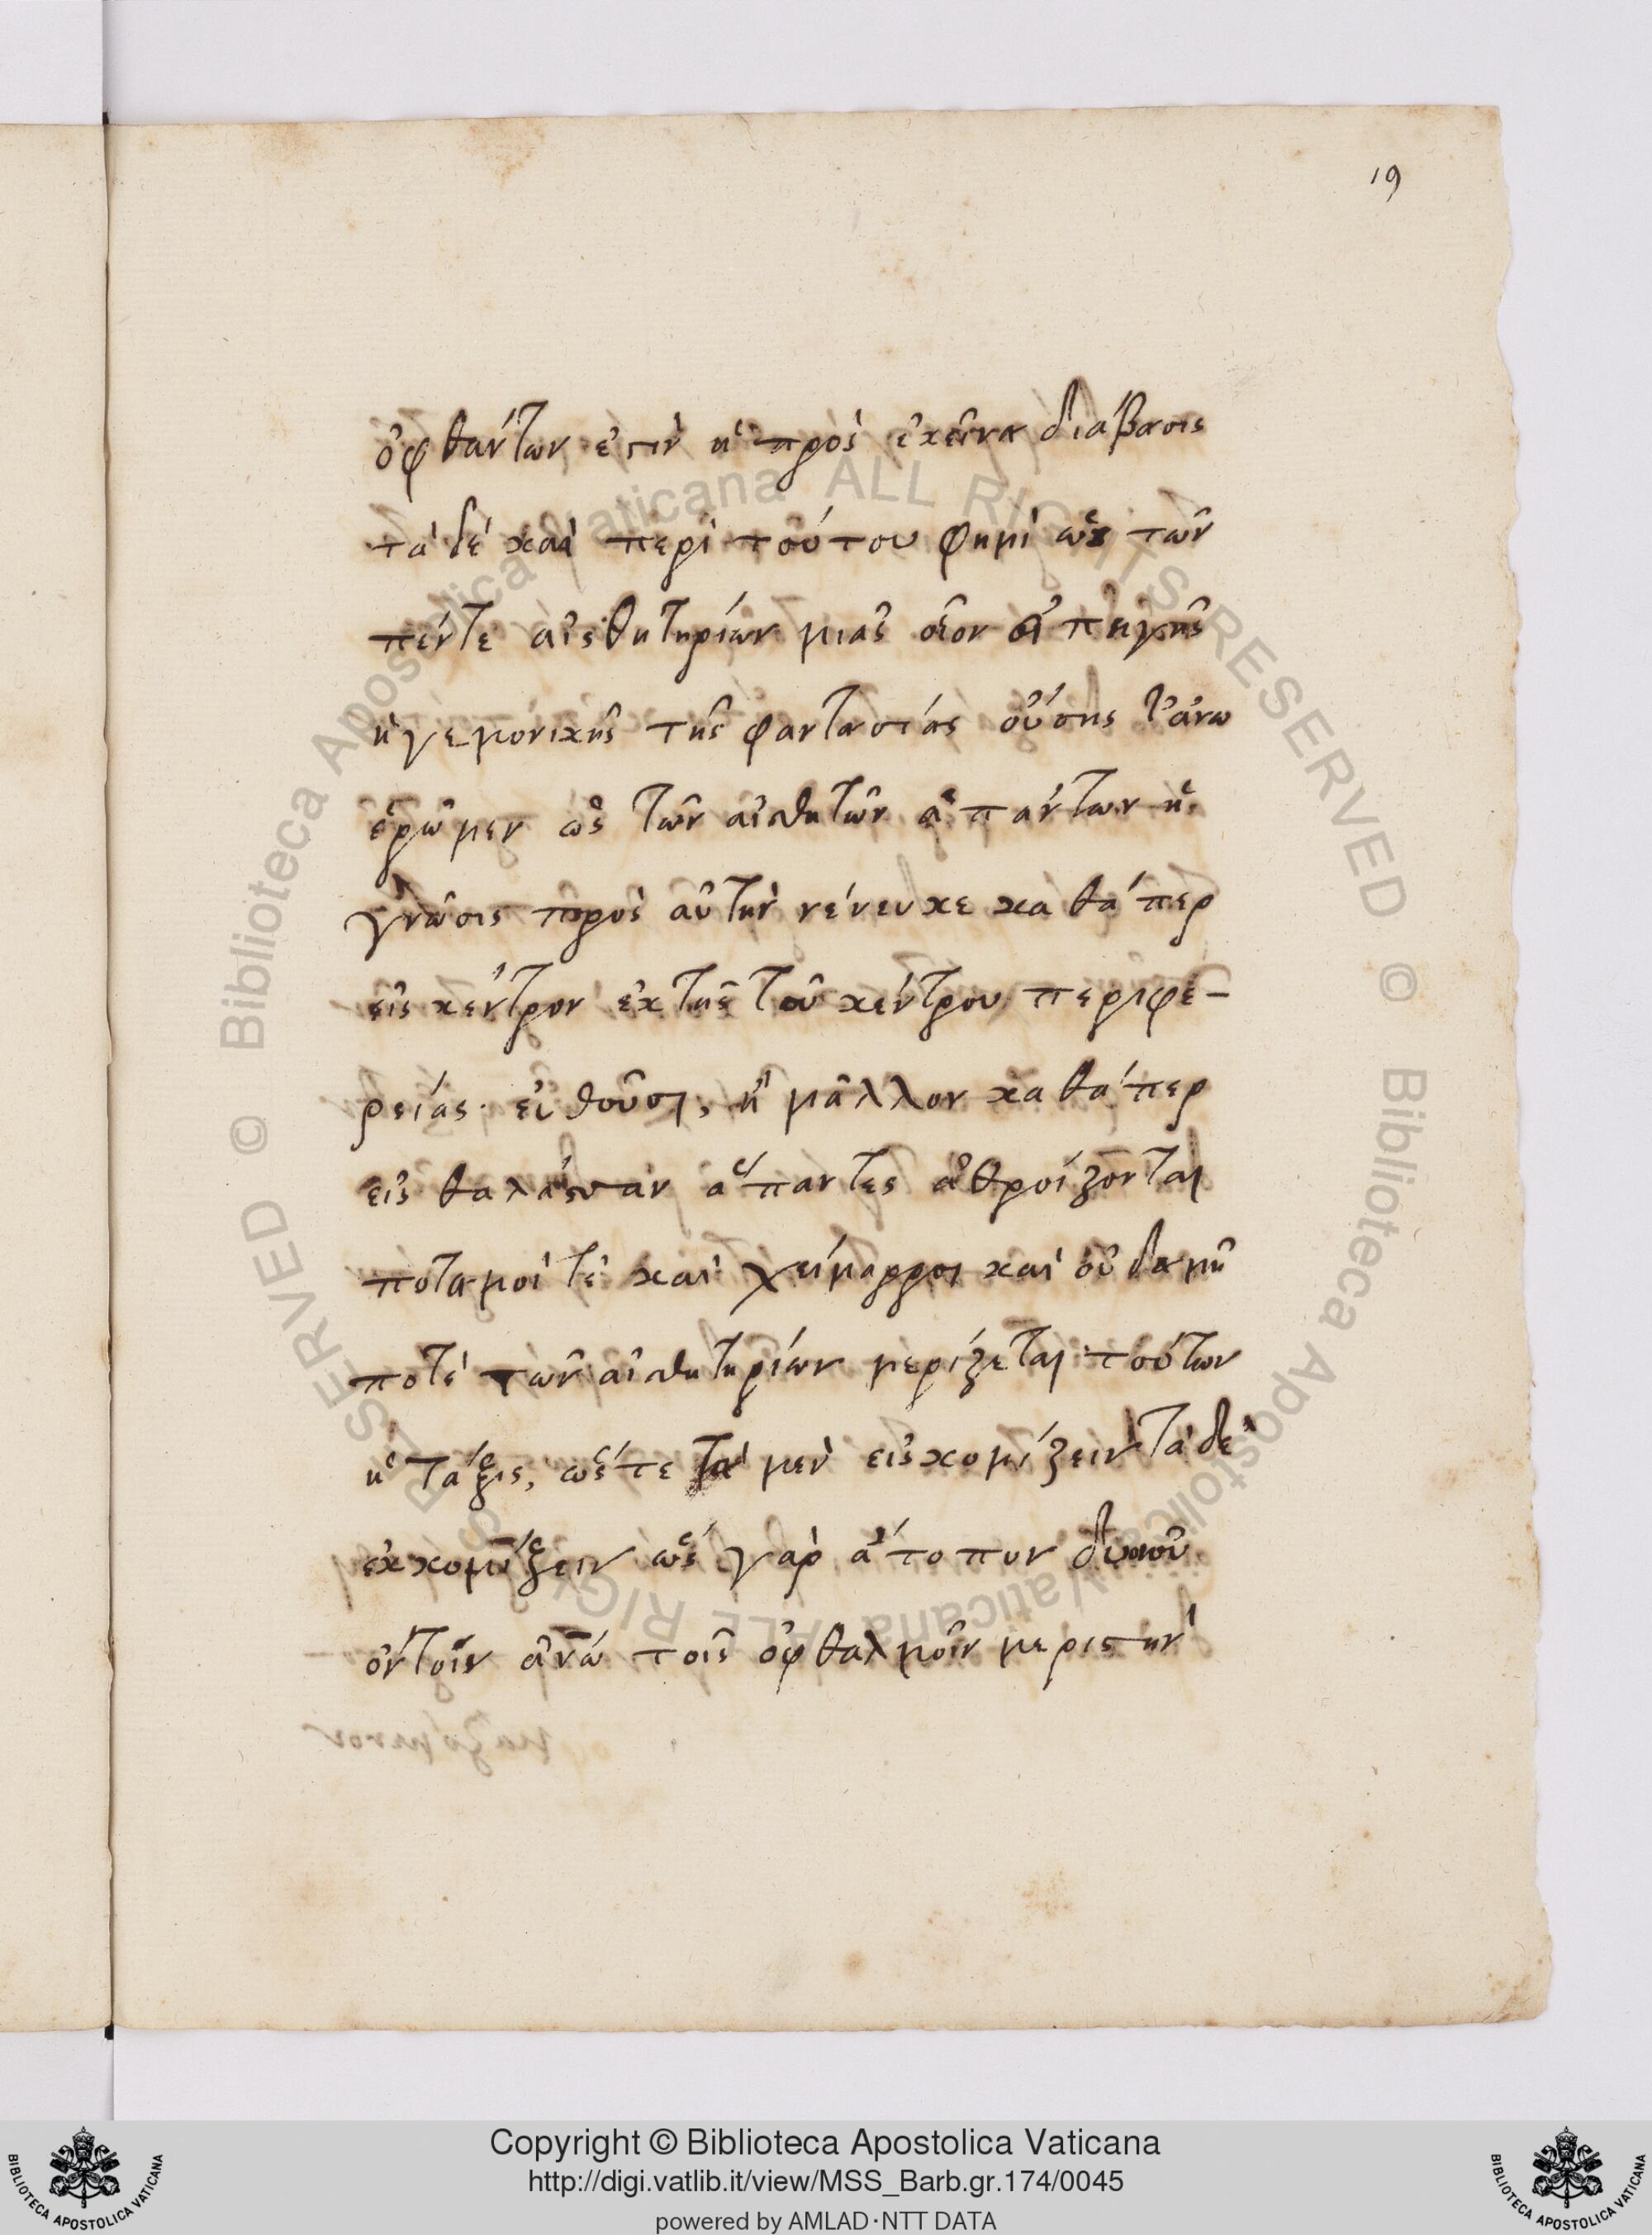 19
ὀφθάντων ἐστὶν ἡ πρὸς ἐκεῖνα διάβασις
τὰ δέ καὶ περὶ τούτου φημὶ ὡς τῶν
πέντε αἰσθητηρίων μιᾶς οἷον εἰ πηγῆς
ἡγεμονικῆς τῆς φαντασίας οὔσης
ἐρῶμεν ὡς τῶν αἰσθητῶν ἁπάντων ἡ
γνῶσις πρὸς αὐτὴν νένευκε καθάπερ
εἰς κέντρον ἐκ τῆς τοῦ κέντρου περιφε-
ρείας εὐθοῦσι, ἢ μᾶλλον καθάπερ
εἰς θαλάσσαν ἅπαντες ἀθροίζονται
ποταμοί τὲ καὶ χείμαρροι καὶ οὐδαμῆ
ποτὲ τῶν αἰσθητηρίων μερίζεται τούτων
ἡ τάξις, ὥστε τὰ μὲν εἰσκομίζειν τὰ δὲ
ἐκκομίζειν ὡς γὰρ ἄτοπον δυοῦ
ὄντοιν ἄνω τοῖς ὀφθαλμοῖν μεριστὴν
Copyright © Biblioteca Apostolica Vaticana
http://digi.vatlib.it/view/MSS_Barb.gr.174/0045
powered by AMLAD·NTT DATA
BIBLIOTECA APOSTOLICA VATICANA
BIBLIOTECA APOSTOLICA VATICANA
Biblioteca Apostolica Vaticana ALL RIGHTS RESERVED ©
Biblioteca Apostolica Vaticana ALL RIGHTS RESERVED ©